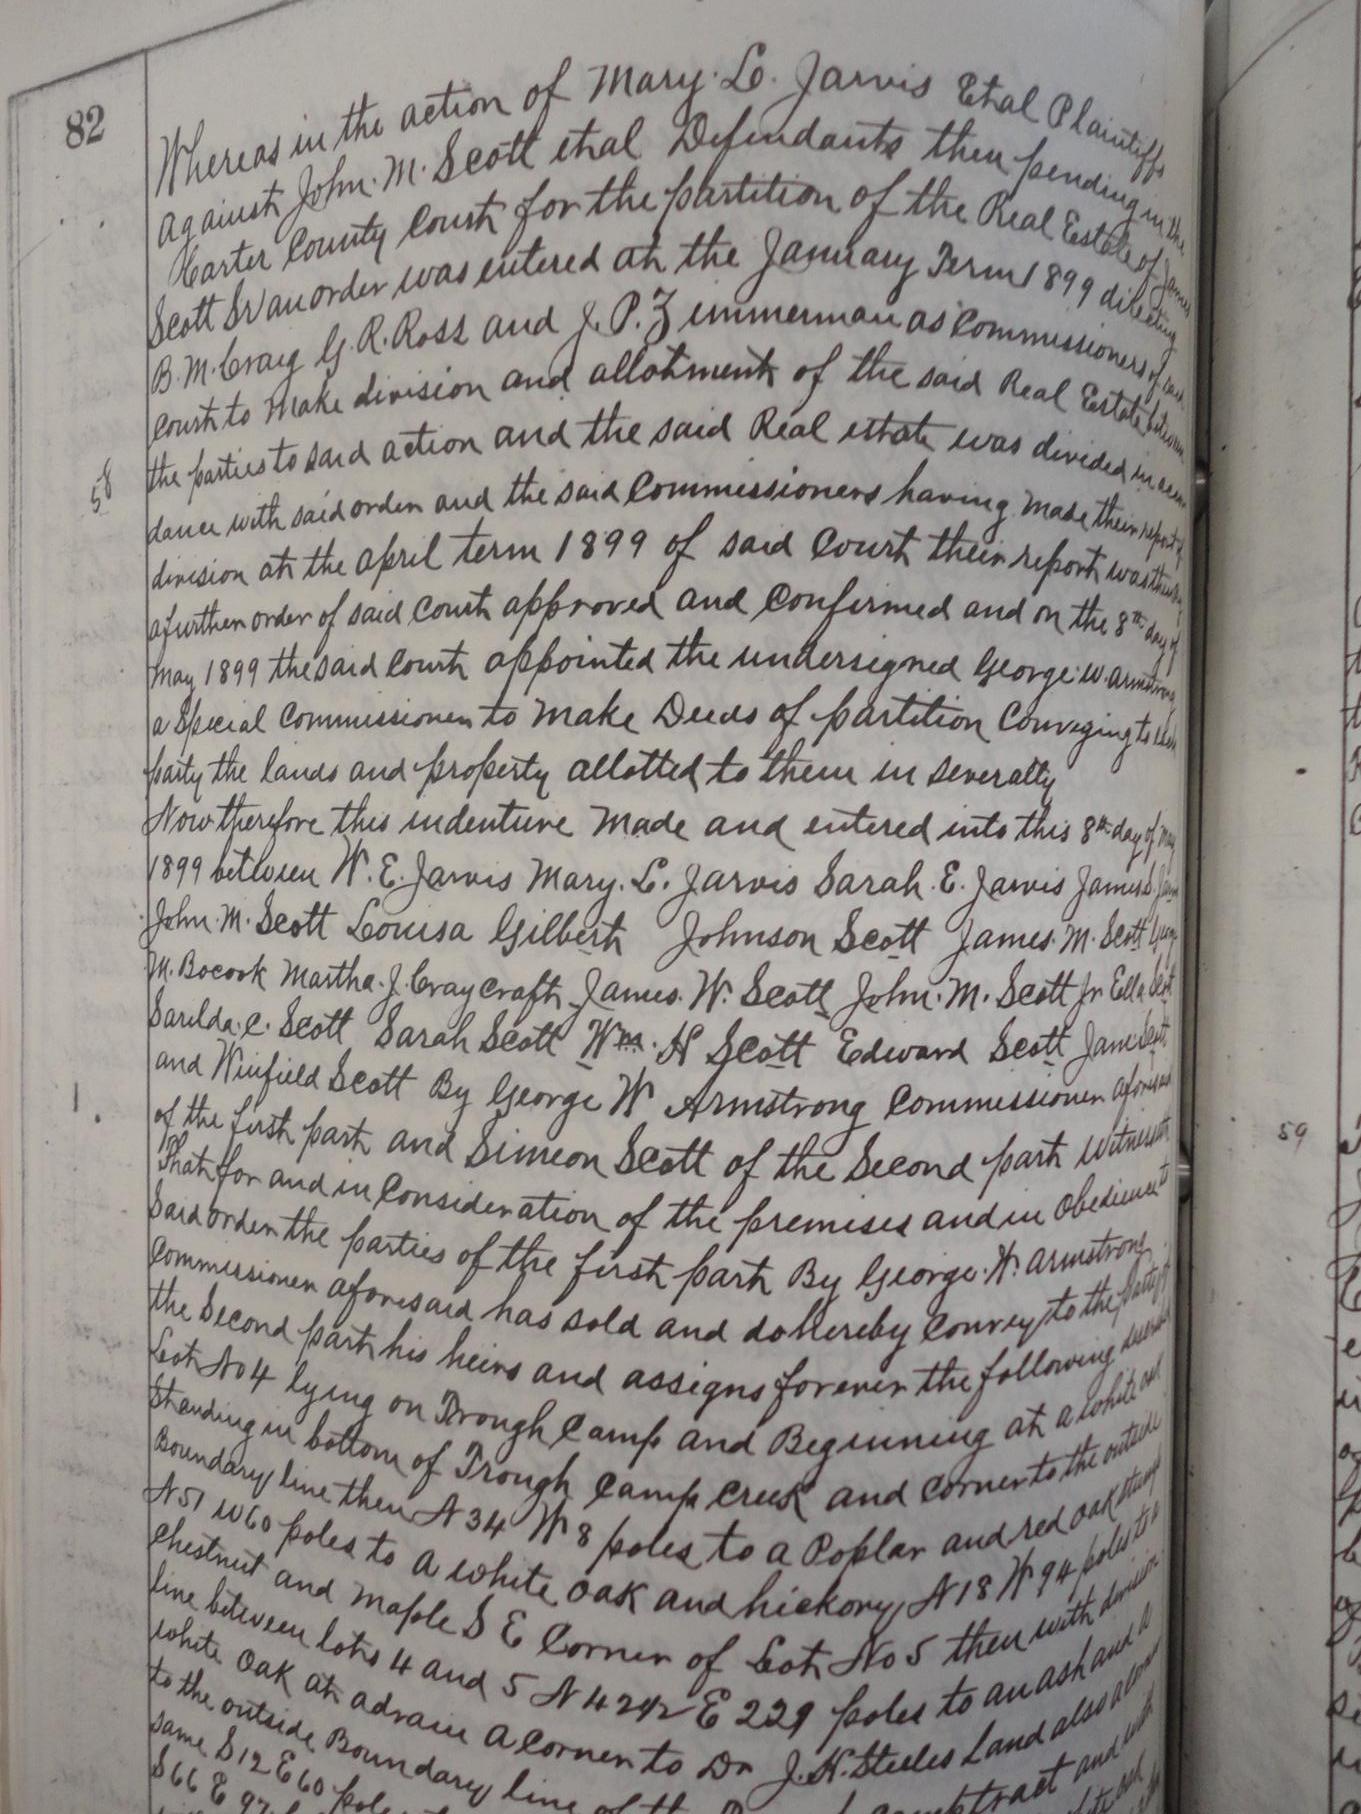 82
Whereas in the action of Mary. L. Jarvis Etal Plaintiffs
against John. M. Scott etal Defendants then pending in the
Carter County Court for the partition of the Real Estate of James
Scott Sr an order was entered at the January Term 1899 directing
B. M. Craig G. R. Ross and J. P. Zimmerman as Commissioners of said
Court to Make division and allotment of the said Real Estate between
the parties to said action and the said Real estate was divided in accor
58
dance with said order and the said Commissioners having Made their report of
division at the April term 1899 of said Court their report was then by
a further order of said Court approved and Confirmed and on the 8th day of
May 1899 the said Court appointed the undersigned George W. Armstrong
a Special Commissioner to Make Deeds of partition Conveying to each
party the lands and property allotted to them in severalty
Now therefore this indenture Made and entered into this 8th day of May
1899 between W. E. Jarvis Mary. L. Jarvis Sarah. E. Jarvis James
John. M. Scott Louisa Gilbert Johnson Scott James. M. Scott
M. Bocook Martha. J. Craycraft James. W. Scott John. M. Scott Jr Ella Scott
Sarilda. C. Scott Sarah Scott Wm. H Scott Edward Scott Jane Scott
and Winfield Scott By George W Armstrong Commissioner aforesaid
of the first part and Simeon Scott of the Second part Witnesseth
That for and in Consideration of the premises and in Obedience to
Said order the parties of the first part By George. W. Armstrong
Commissioner aforesaid has sold and do hereby Convey to the party of
the Second part his heirs and assigns forever the following
Lot No 4 lying on Trough Camp and Beginning at a white oak
Standing in bottom of Trough Camp Creek and Corner to the outside
Boundary line then N 34 W 8 poles to a Poplar and red oak stump
N 51 W 60 poles to a white oak and hickory N 18 W 94 poles to a
Chestnut and Maple S E Corner of Lot No 5 then with division
line between lots 4 and 5 N 42 1/2 E 229 poles to an ash and a
white Oak at a drain a Corner to Dr J. H. Steeles Land also a Corner
to the outside Boundary line of the tract and with
same S 12 E 60 poles
S 66 E 97
59